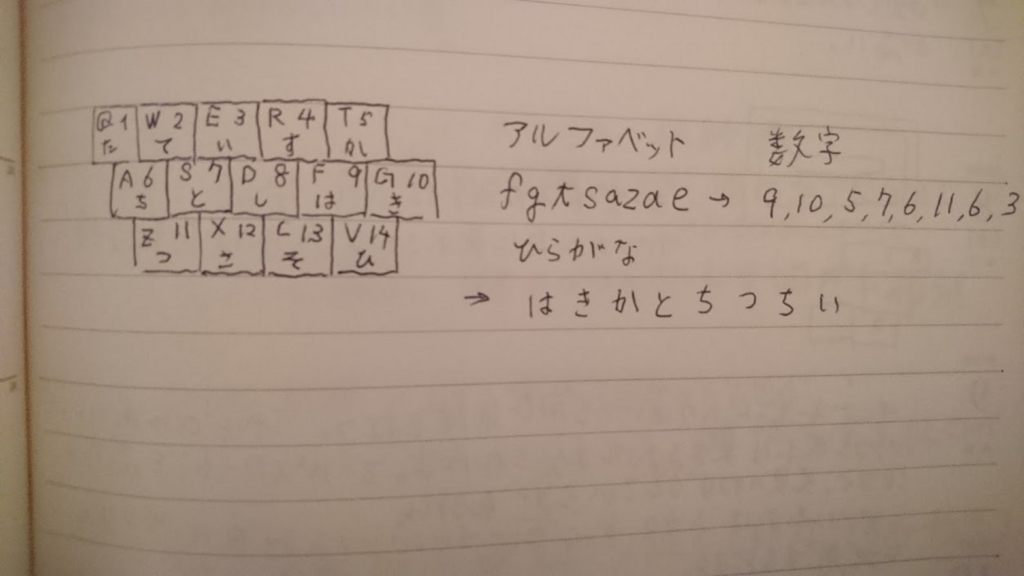 Q 1 W 2 E 3 R 4 T 5
た て い す か
A 6 S 7 D 8 F 9 G 10
ち と し は き
Z 11 X 12 C 13 V 14
つ さ そ ひ
アルファベット 数字
fgtsazae → 9,10,5,7,6,11,6,3
ひらがな
→ はきかとちつちい